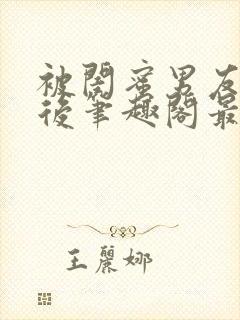 被閨蜜男友
後筆趣閣最
王麗娜